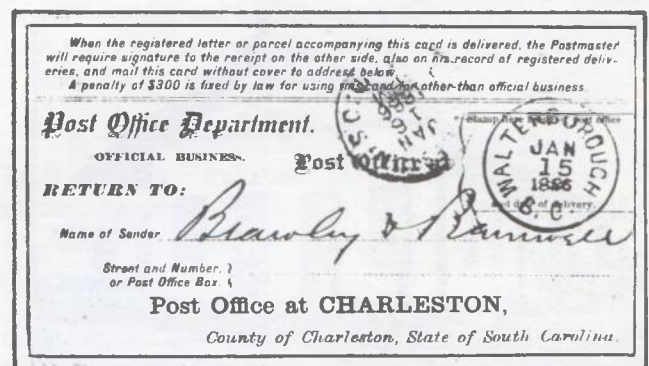 When the registered letter or parcel accompanying this card is delivered, the Postmaster
will require signature to the receipt on the other side, also on his record of registered deliv-
eries, and mail this card without cover to address below.
A penalty of $300 is fixed by law for using this card for other than official business
Post Office Department.
OFFICIAL BUSINESS.
Post Office at
Stamp here name of post office
WALTERBOROUGH
JAN
15
1886
S. C.
and date of delivery.
JAN
16
RETURN TO:
Name of Sender Brawley & Barnwell
Street and Number,
or Post Office Box.
Post Office at CHARLESTON,
County of Charleston, State of South Carolina.